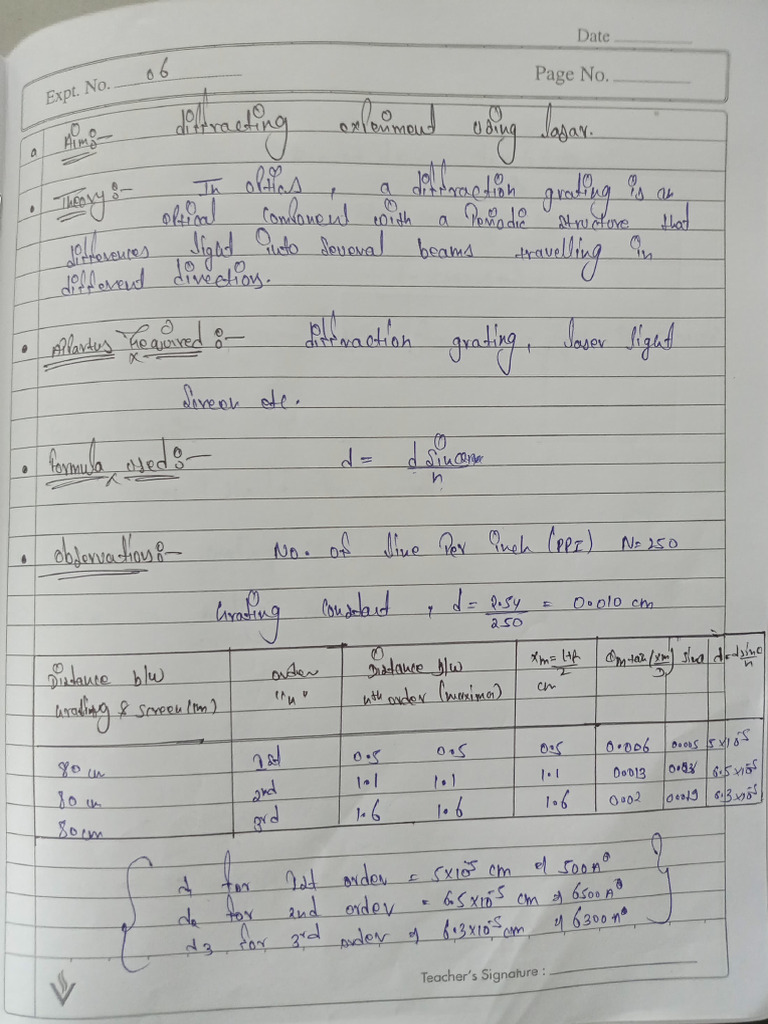 Date
Expt. No. 06
Page No.
Aim:- diffracting experiment using lasar.
Theory:- In optics, a diffraction grating is an
optical component with a Periodic structure that
differences light into several beams travelling in
different direction.
Appartus Required :- diffraction grating, laser light
Sireen etc.
formula used:- d = d sin
n
observation:- No. of line Per inch (PPI) N=250
Grating Constant, d = 2.54 = 0.010 cm
250
Distance b/w order Distance b/w xm = sinθ
Grating & screen (cm) "n" nth order (maxima) cm
80 cm 1st 0.5 0.5 0.5 0.006 0.005 5x10-5
80 cm 2nd 1.1 1.1 1.1 0.0013 6.5x10-5
80cm 3rd 1.6 1.6 1.6 0.002 0.0019 6.3x10-5
for 1st order = 5x10-5 cm 500A°
for 2nd order = 6.5x10-5 cm 6500A°
d3 for 3rd order 6.3x10-5cm 6300A°
Teacher's Signature :